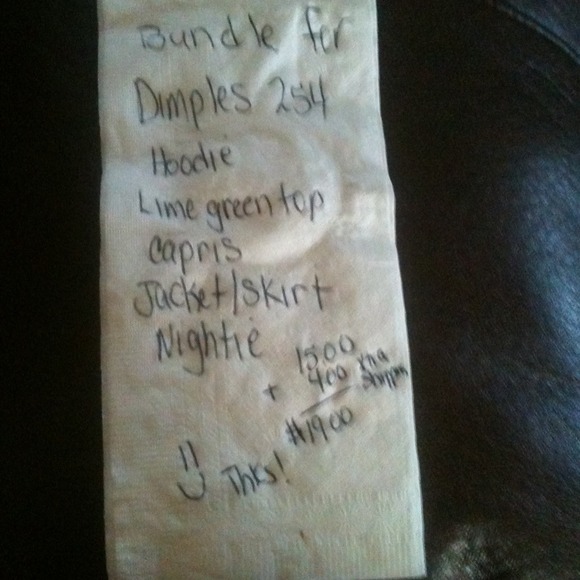 Bundle for
Dimples 254
Hoodie
Lime green top
Capris
Jacket/skirt
Nightie
1500
+ 400 xtra
Shippin
$1900
Thks!